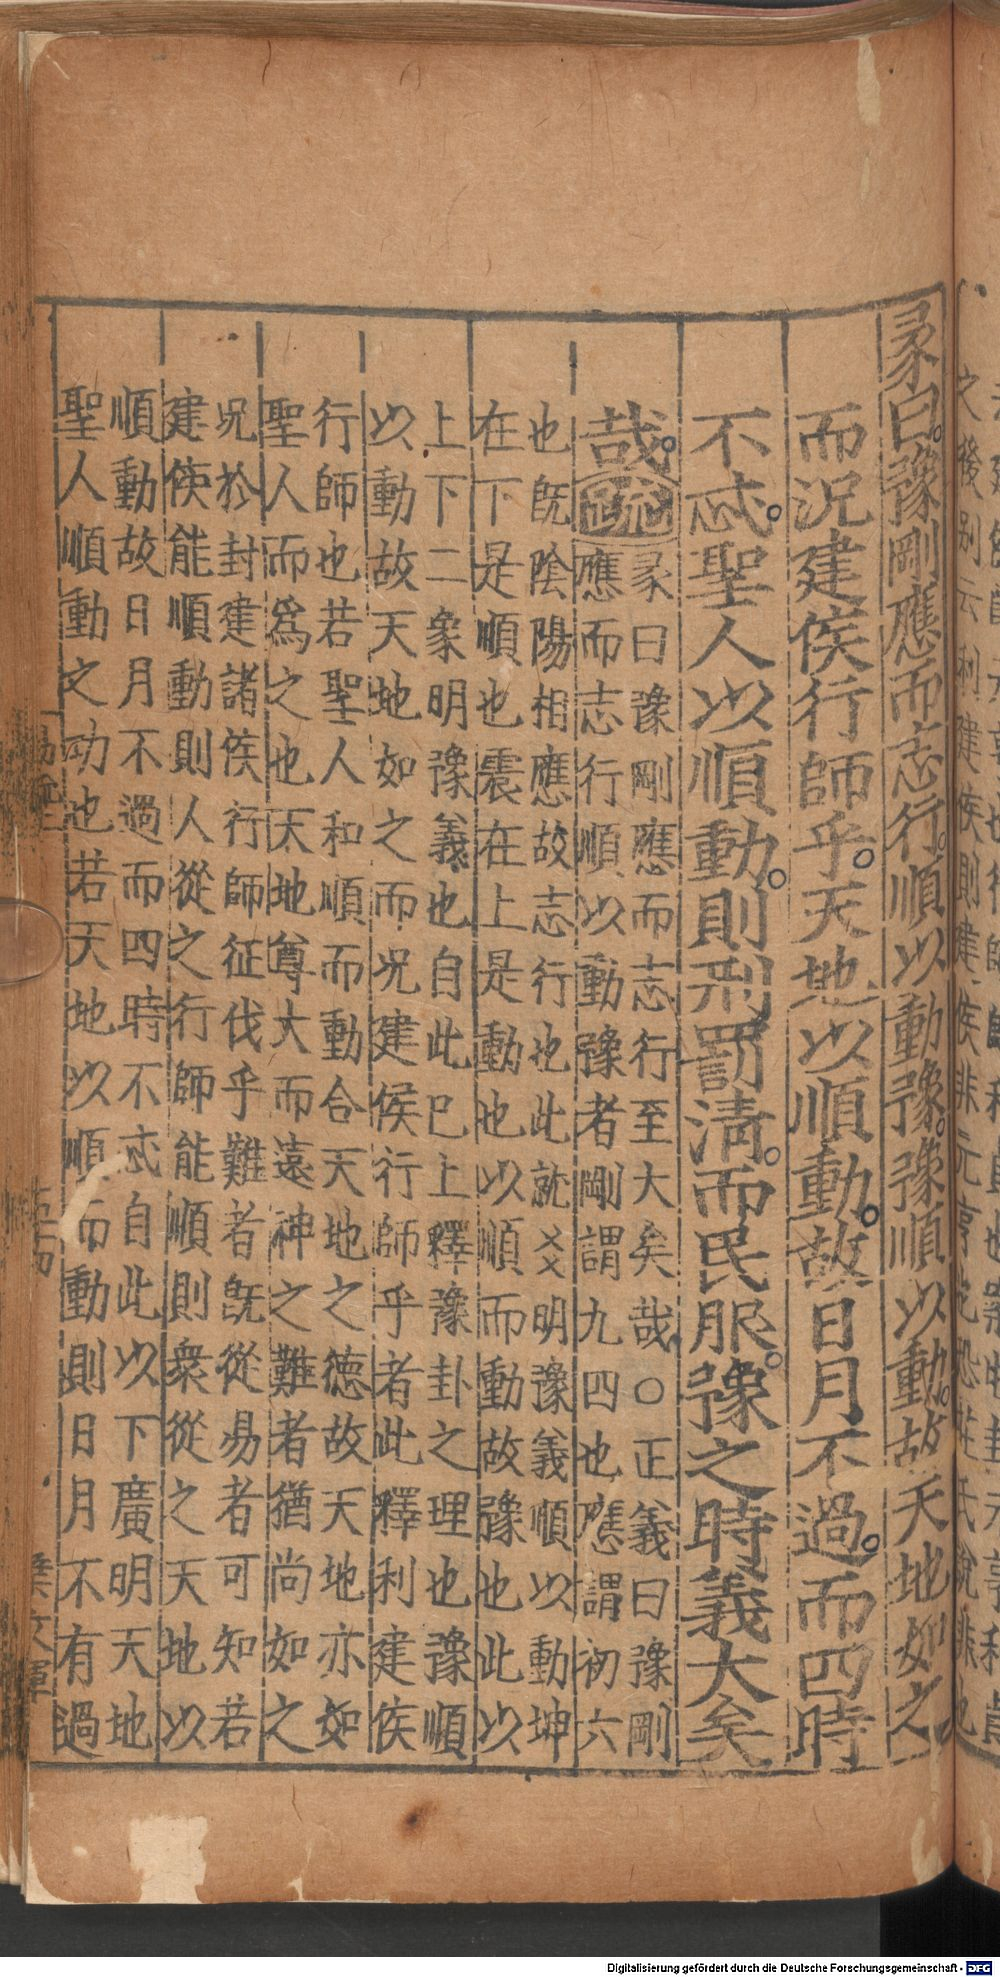 彖曰豫剛應而志行順以動豫豫順以動故天地如之
而况建侯行師乎天地以順動故日月不過而四時
不忒聖人以順動則刑罰清而民服豫之時義大矣
哉疏彖曰豫剛應而志行至大矣哉○正義曰豫剛
應而志行順以動豫者剛謂九四也應謂初六
也旣陰陽相應故志行也此就爻明豫義順以動坤
在下是順也震在上是動也以順而動故豫也此以
上下二象明豫義也自此已上釋豫卦之理也豫順
以動故天地如之而况建侯行師乎者此釋利建侯
行師也若聖人和順而動合天地之德故天地亦如
聖人而爲之也天地尊大而遠神之難者猶尚如之
况於封建諸侯行師征伐乎難者旣從易者可知若
建侯能順動則人從之行師能順則衆從之天地以
順動故日月不過而四時不忒自此以下廣明天地
聖人順動之功也若天地以順而動則日月不有過
Digitalisierung gefördert durch die Deutsche Forschungsgemeinschaft - DFG